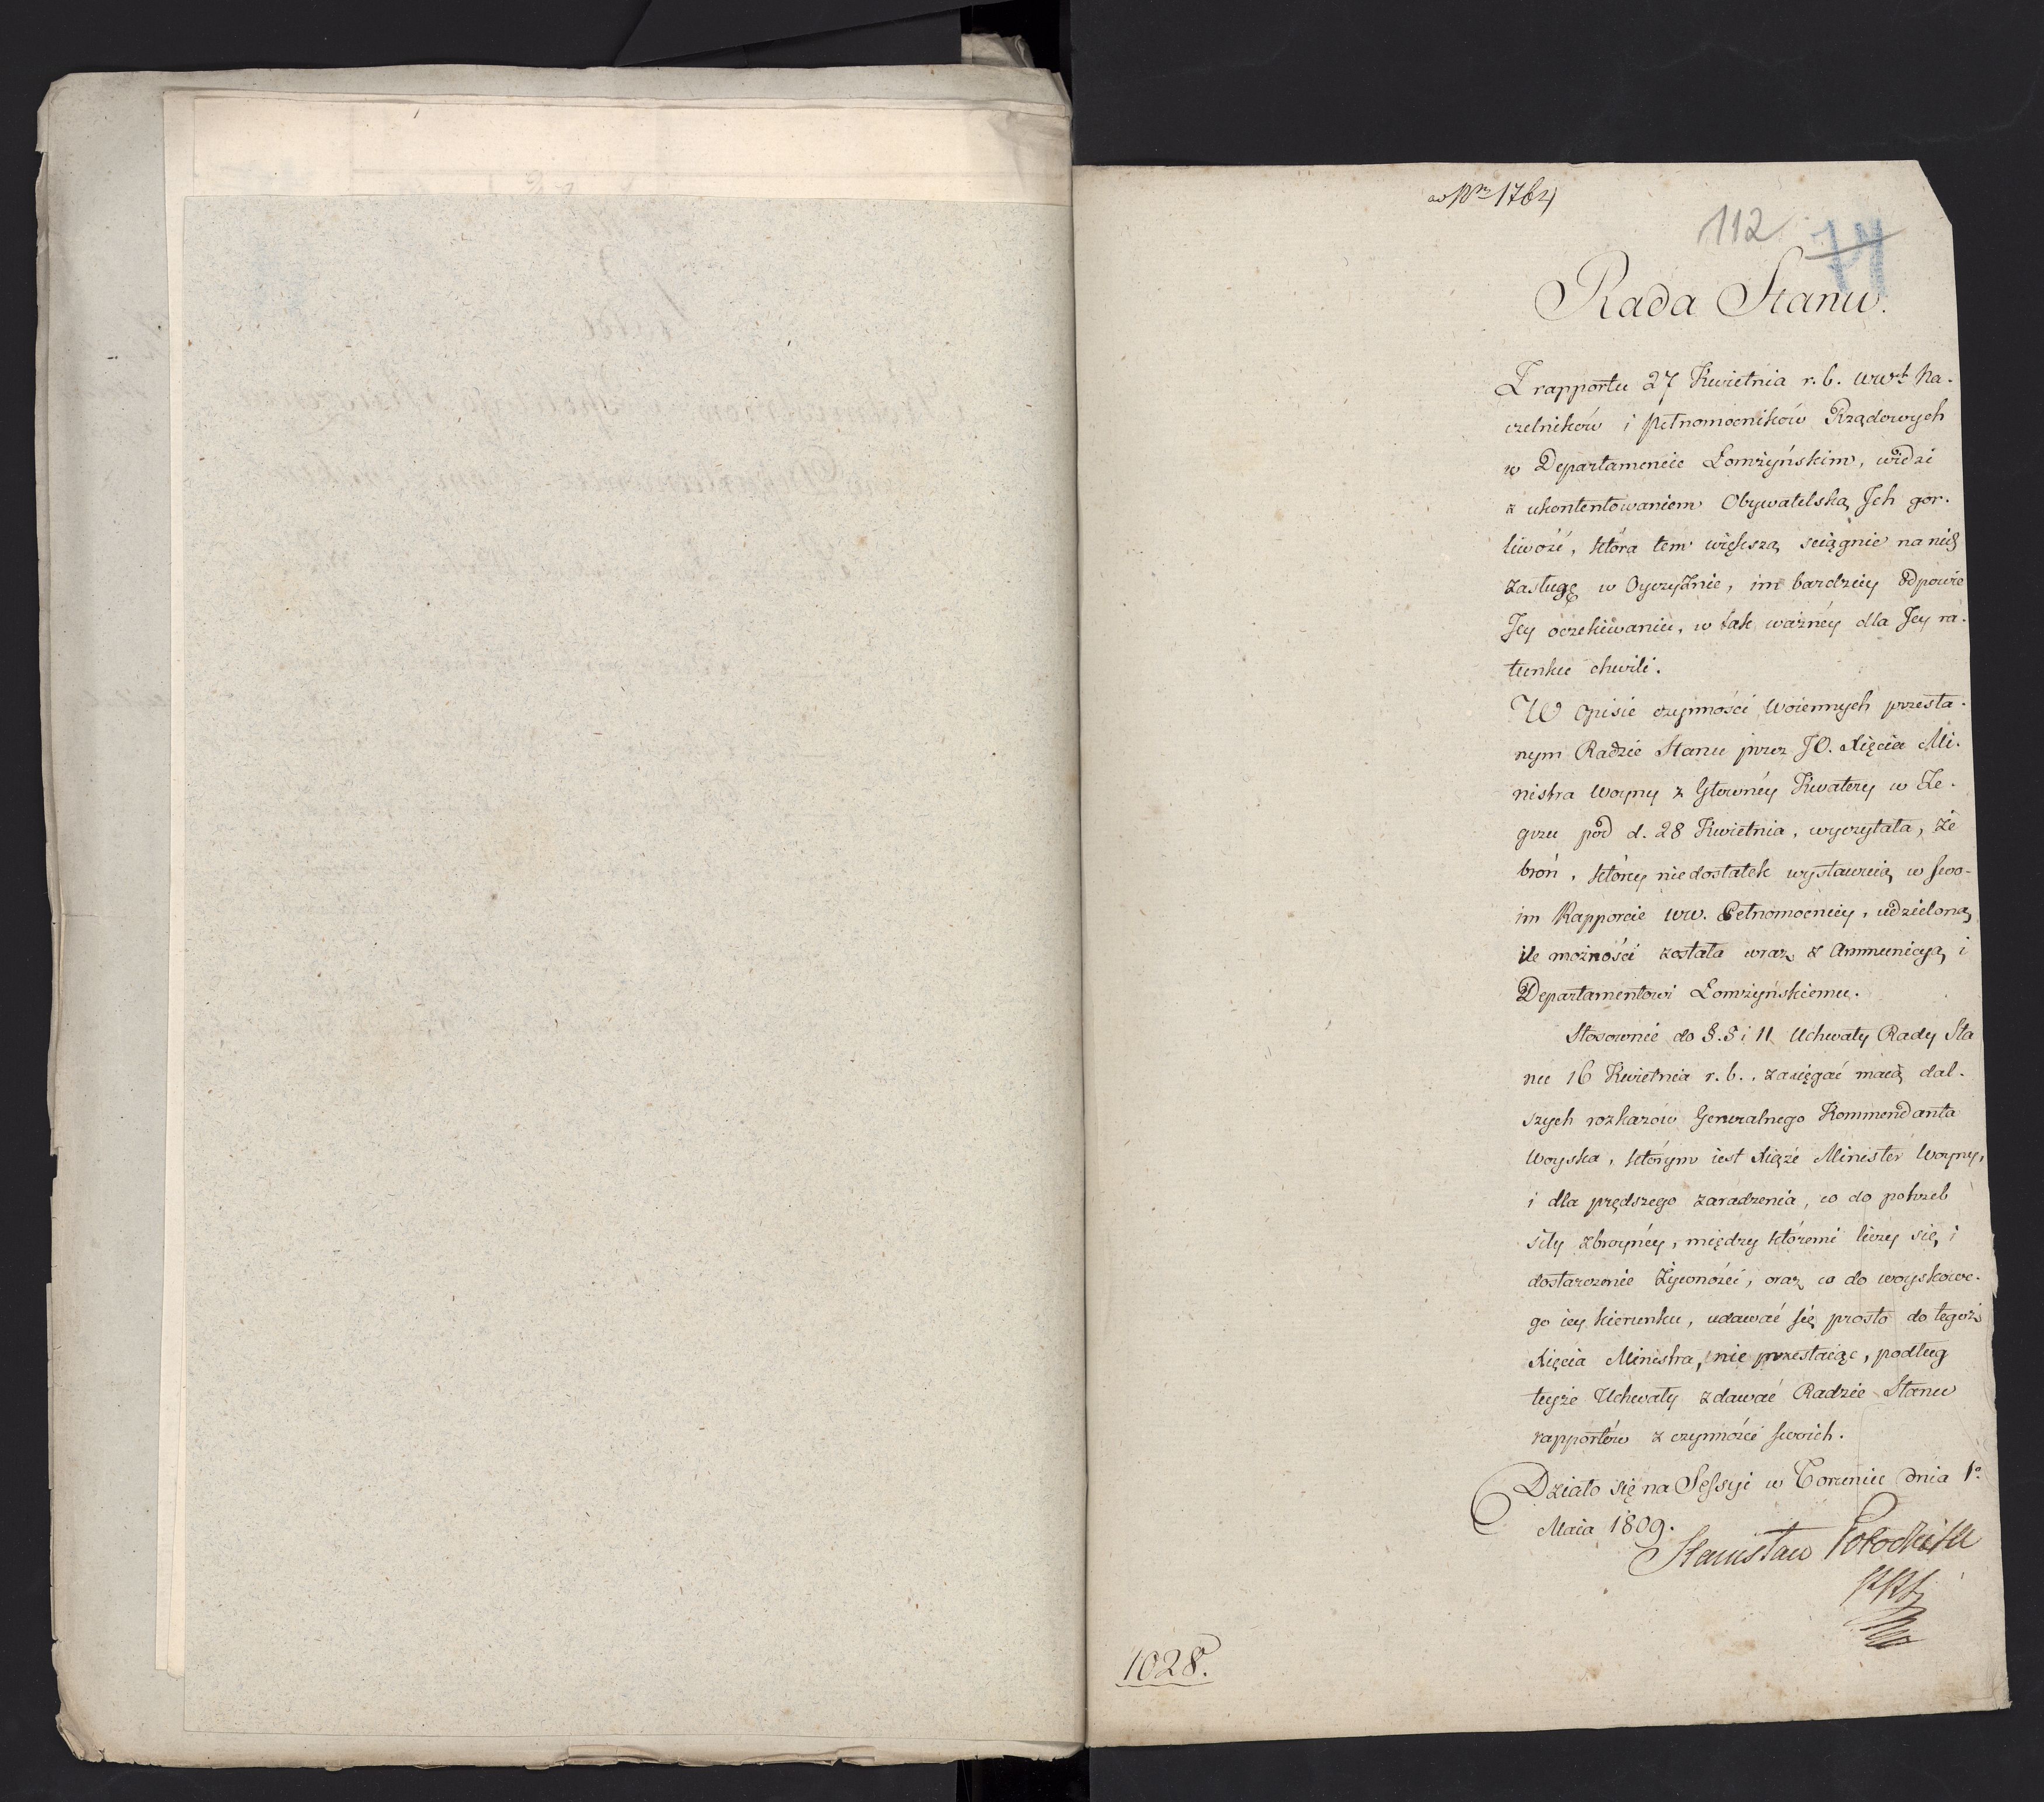 ad Nrm 1764
112
74
Rada Stanu.
Z rapportu 27 Kwietnia r. b. ww. Na-
czelników i Pełnomocników Rządowych
w Departamencie Łomżyńskim, widzi
z ukontentowaniem Obywatelską Ich gor-
liwość, która tem większą sciągnie na nich
zasługę w Oyczyznie, im bardziey odpowie
Jey oczekiwaniu, w tak ważnéy dla Jey ra-
tunku chwili.
W opisie czynności woiennych przesła-
nym Radzie Stanu przez JO. Xięcia Mi-
nistra Woyny z Głownéy Kwatery w Ze-
grzu pod d. 28 Kwietnia, wyczytała, że
broń, któréy niedostatek wystawuią w swo-
im Rapporcie ww. Pełnomocnicy, udzieloną
ile możności została wraz z Ammunicyą i
Departamentowi Łomżyńskiemu.
Stosownie do §. 5 i 11 Uchwały Rady Sta
nu 16 Kwietnia r. b., zasięgać maią dal-
szych rozkazow Generalnego Kommendanta
Woyska, którym iest Xiąże Minister Woyny,
i dla prędszego zaradzenia, co do potrzeb
siły zbroynéy, między któremi liczy się i
dostarczenie żywności, oraz co do woyskowe-
go iey kierunku, udawać się prosto do tegoż
Xięcia Ministra, nie przestaiąc, podług
teyże Uchwały zdawać Radzie Stanu
rapportów z czynności swoich.
Działo się na Sessyi w Toruniu dnia 1o
Maia 1809.
Stanisław Potocki
1028.